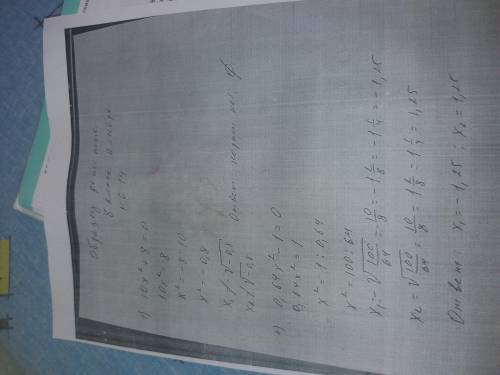 Образец решения
8 класс алгебра
1) 10x² + 8 = 0
10x² = -8
x² = -8:10
x² = -0,8
x₁ ≠ √-0,8
x₂ ≠ √-0,8 Ответ: корней нет, ∅
2) 0,64x² - 1 = 0
0,64x² = 1
x² = 1:0,64
x² = 100:64
x₁ = -√100/64 = -10/8 = -1 2/8 = -1 1/4 = -1,25
x₂ = √100/64 = 10/8 = 1 2/8 = 1 1/4 = 1,25
Ответ: x₁ = -1,25; x₂ = 1,25